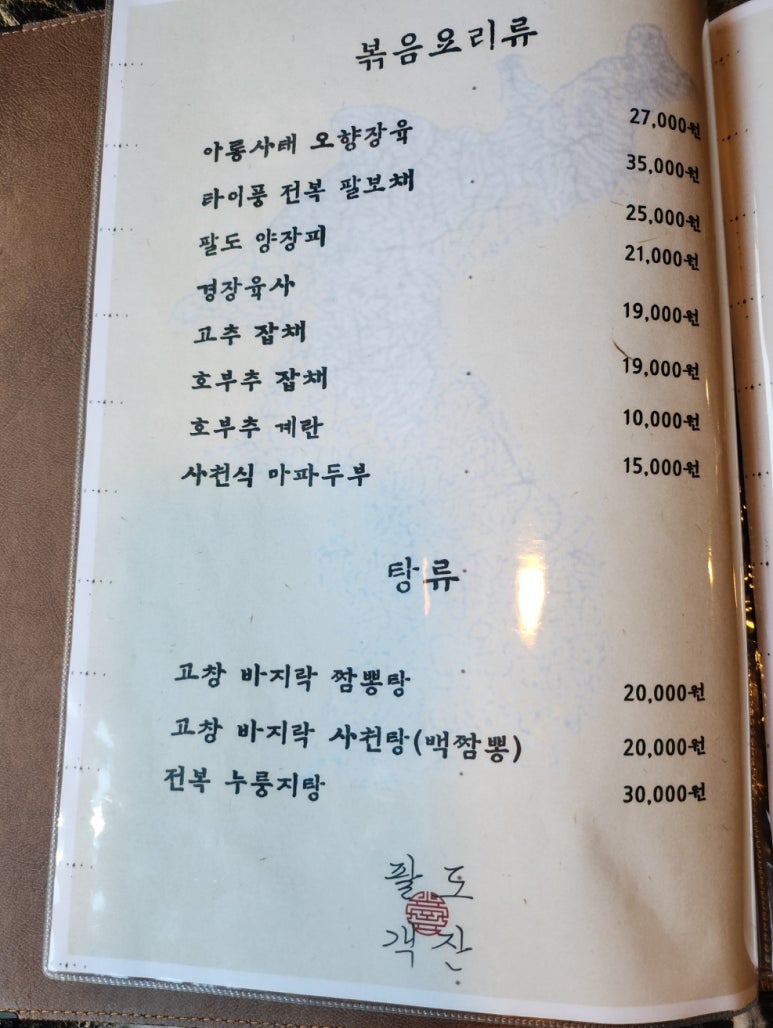 볶음요리류
아롱사태 오향장육 27,000원
타이풍 전복 팔보채 35,000원
팔도 양장피 25,000원
경장육사 21,000원
고추 잡채 19,000원
호부추 잡채 19,000원
호부추 계란 10,000원
사천식 마파두부 15,000원
탕류
고창 바지락 짬뽕탕 20,000원
고창 바지락 사천탕(백짬뽕) 20,000원
전복 누룽지탕 30,000원
팔도
객잔